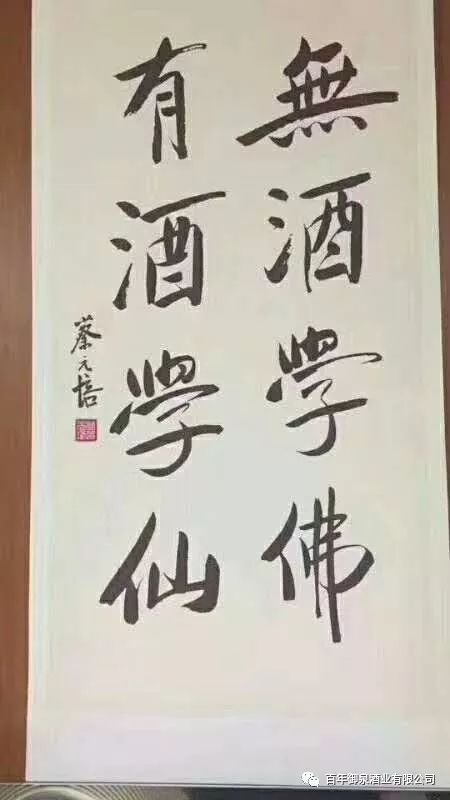 無酒學佛
有酒學仙
蔡元培
百年御泉酒业有限公司